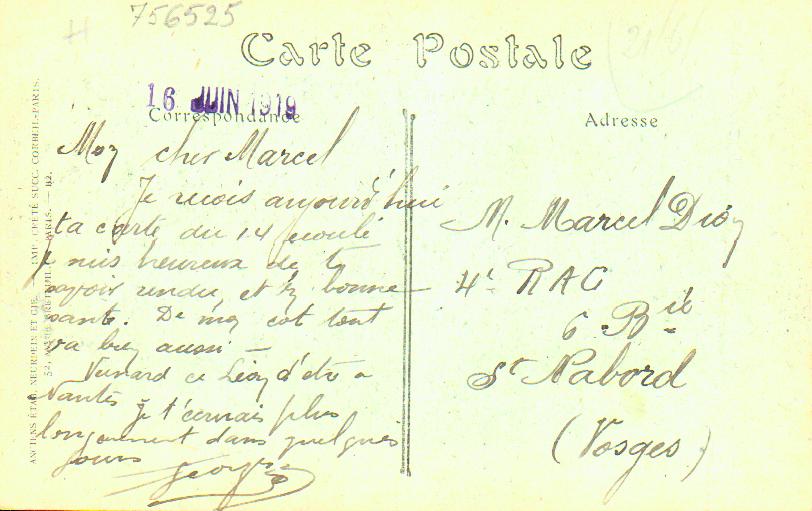 756525
H
21/6/
Carte Postale
16 JUIN 1919
Correspondance
Adresse
Mon cher Marcel
Je reçois aujourd'hui
ta carte du 14 écoulé
je suis heureux de te
savoir rendu et en bonne
santé. De mon côté tout
va bien aussi —
ce Léon d'être à
Nantes je t'écrirais plus
longuement dans quelques
jours Georges
M. Marcel Dion
4e RAC
6 Bie
St Nabord
(Vosges)
ANCIENS ÉTAB. NEURDEIN ET CIE. — IMP. CRÉTÉ SUCC. CORBEIL-PARIS.
52, PARIS. — 112.